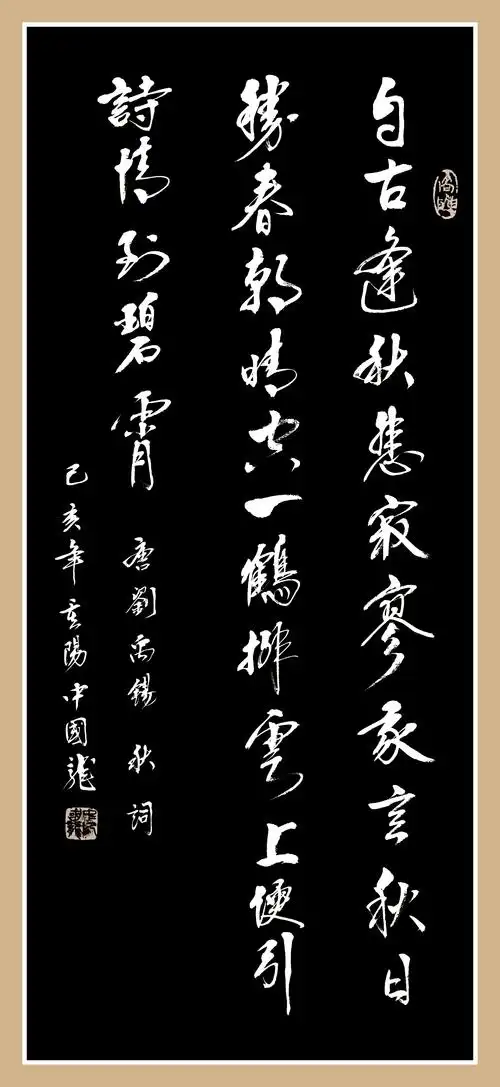 自古逢秋悲寂寥我言秋日
勝春朝晴空一鶴排雲上便引
詩情到碧霄
唐劉禹錫 秋詞
己亥年重陽中國龍